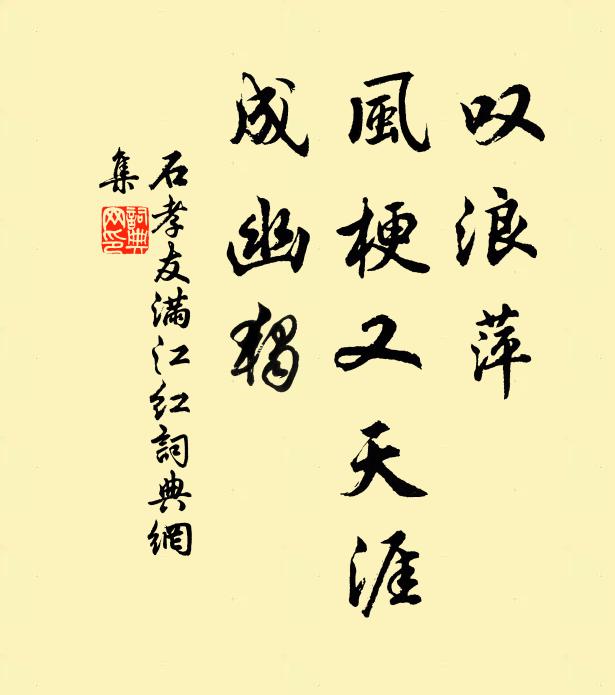 叹浪萍
風梗又天涯
成幽獨
石孝友滿江紅詞典網
集
詞典网印